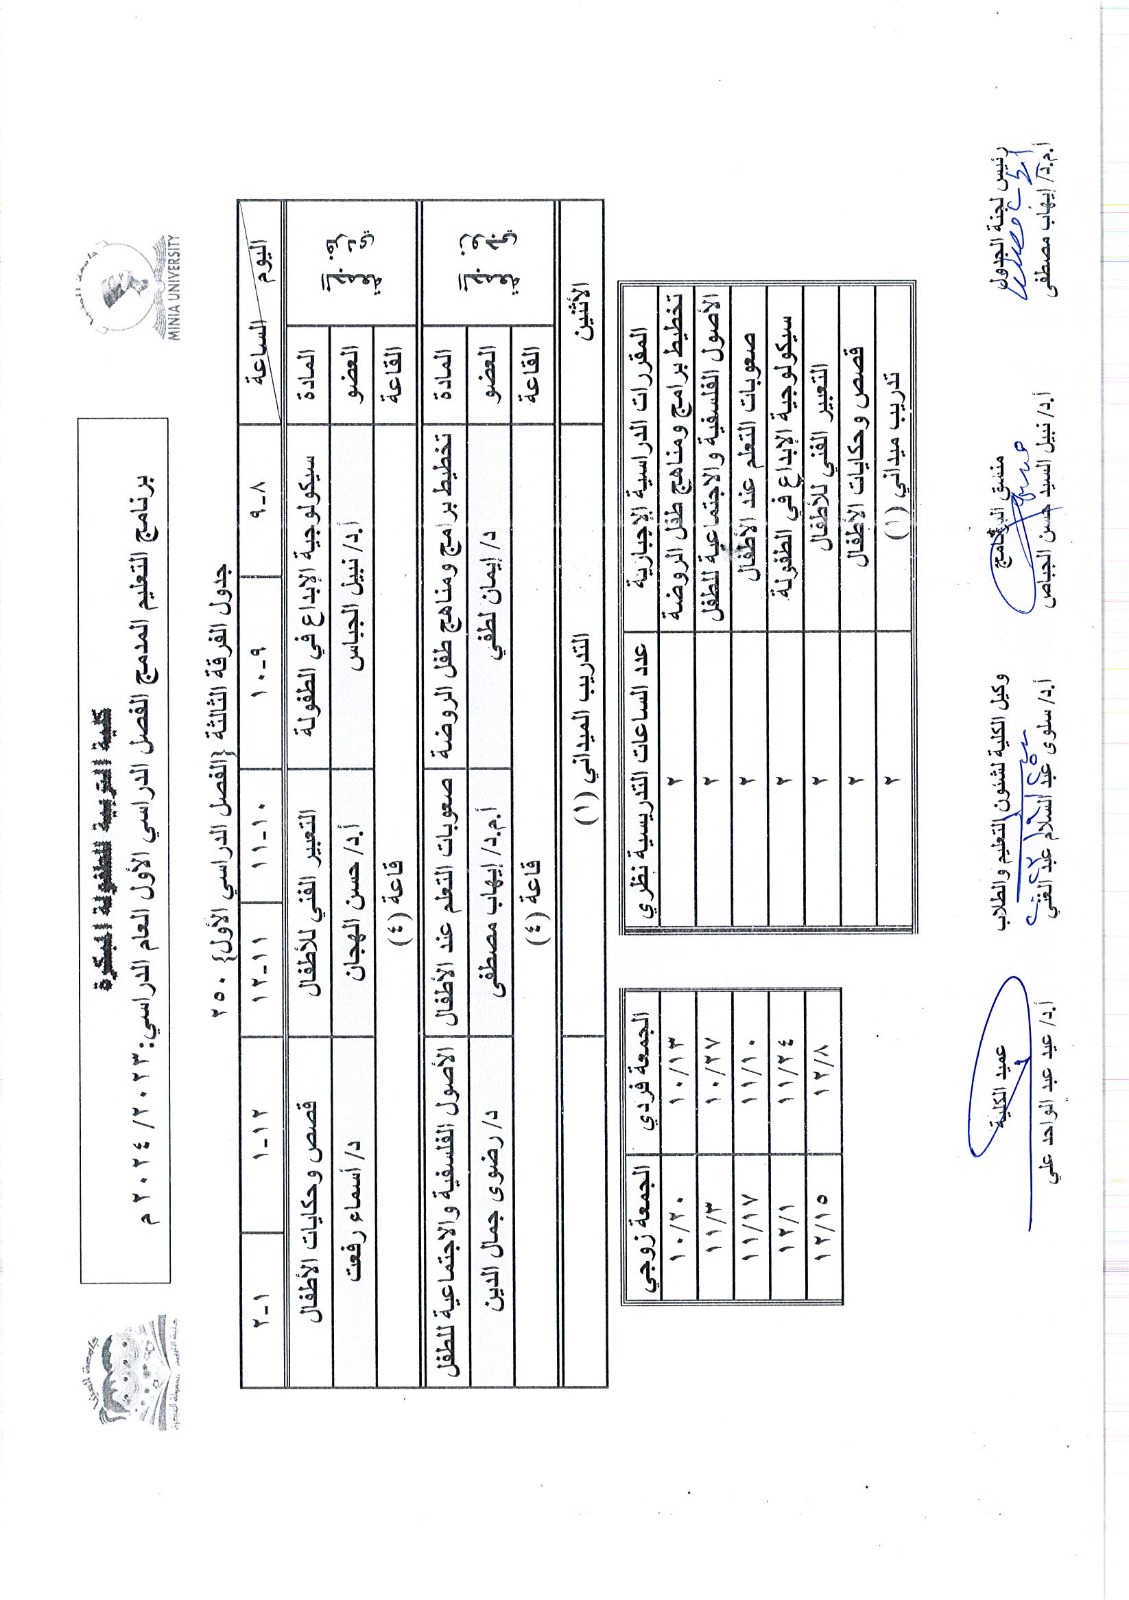 جامعة المنيا
MINIA UNIVERSITY
كلية التربية للطفولة المبكرة
برنامج التعليم المدمج الفصل الدراسي الأول العام الدراسي: ٢٠٢٣/ ٢٠٢٤ م
جدول الفرقة الثالثة {الفصل الدراسي الأول} ٢٥٠
اليوم الساعة ٨-٩ ٩-١٠ ١٠-١١ ١١-١٢ ١٢-١ ١-٢
المادة سيكولوجية الإبداع في الطفولة التعبير الفني للأطفال قصص وحكايات الأطفال
العضو أ.د/ نبيل الجباس أ.د/ حسن الهجان د/ أسماء رفعت
القاعة قاعة (٤)
المادة تخطيط برامج ومناهج طفل الروضة صعوبات التعلم عند الأطفال الأصول الفلسفية والاجتماعية للطفل
العضو د/ إيمان لطفي أ.م.د/ إيهاب مصطفى د/ رضوى جمال الدين
القاعة قاعة (٤)
الأثنين التدريب الميداني (١)
المقررات الدراسية الإجبارية عدد الساعات التدريسية نظري
تخطيط برامج ومناهج طفل الروضة ٢
الأصول الفلسفية والاجتماعية للطفل ٢
صعوبات التعلم عند الأطفال ٢
سيكولوجية الإبداع في الطفولة ٢
التعبير الفني للأطفال ٢
قصص وحكايات الأطفال ٢
تدريب ميداني (١) ٢
الجمعة فردي الجمعة زوجي
١٠/١٣ ١٠/٢٠
١٠/٢٧ ١١/٣
١١/١٠ ١١/١٧
١١/٢٤ ١٢/١
١٢/٨ ١٢/١٥
رئيس لجنة الجدول
أ.م.د/ إيهاب مصطفى
منسق البرنامج
أ.د/ نبيل السيد حسن الجباص
وكيل الكلية لشئون التعليم والطلاب
أ.د/ سلوى عبد السلام عبد الغني
عميد الكلية
أ.د/ عيد عبد الواحد علي